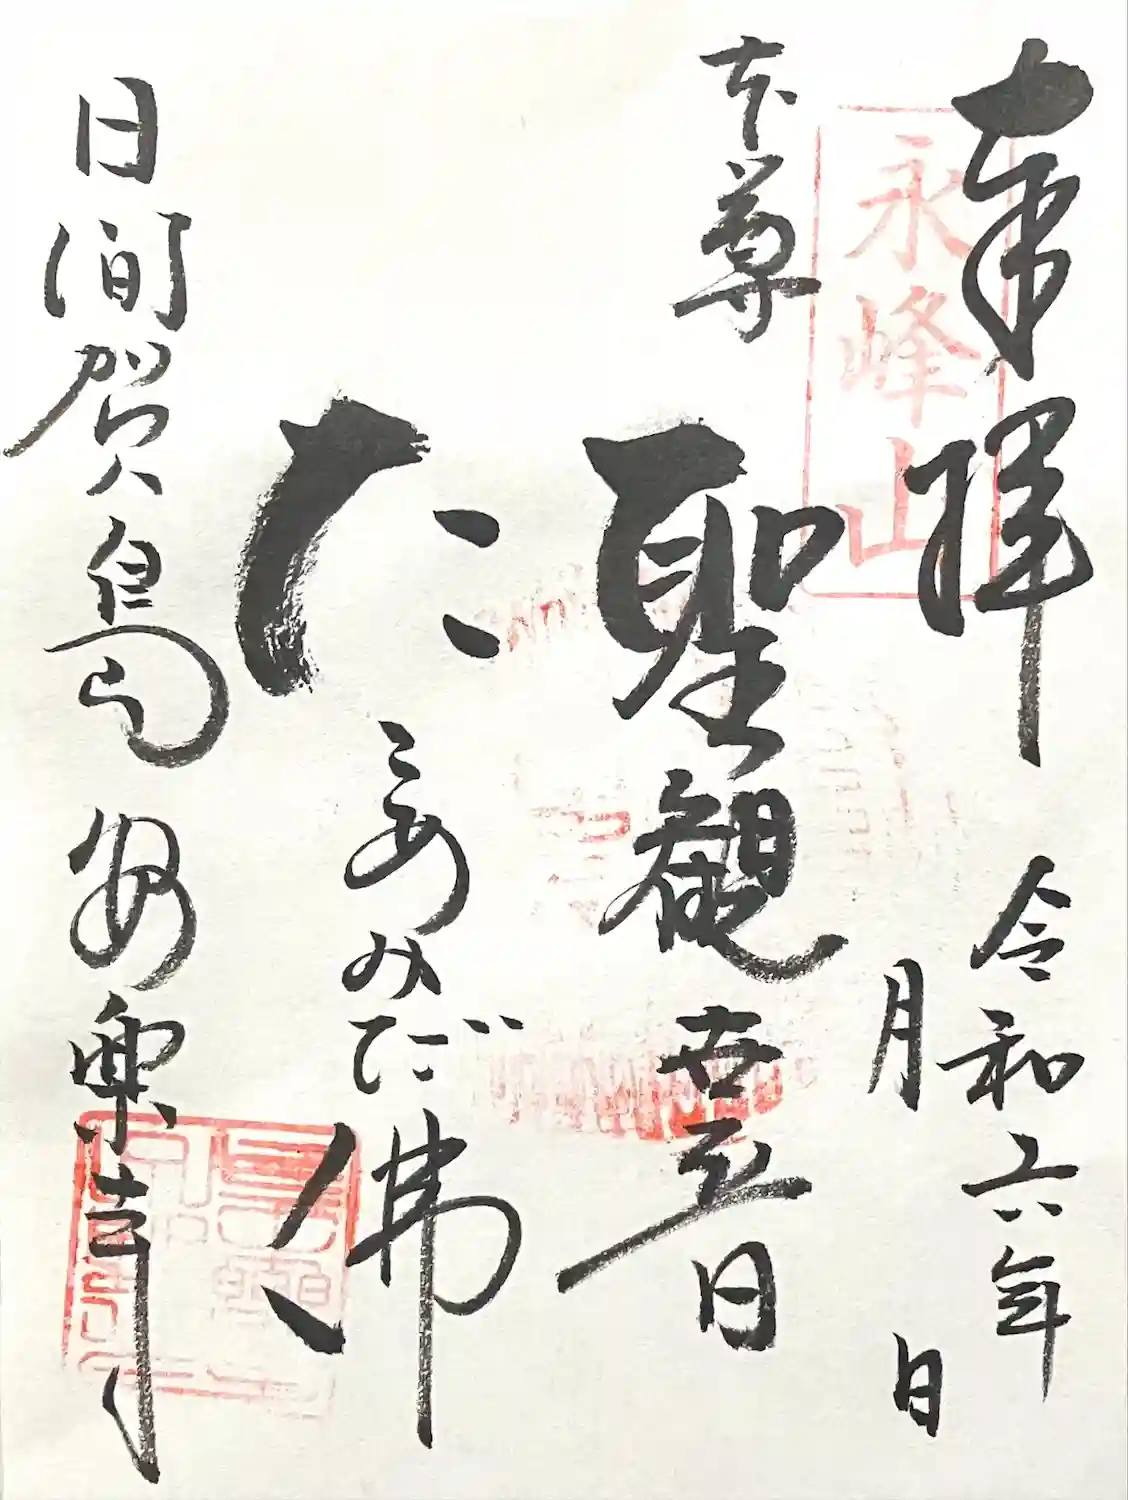 奉拝
令和六年
月　日
永峰山
本尊
聖観世音
たこあみだ佛
日間賀島　安楽寺